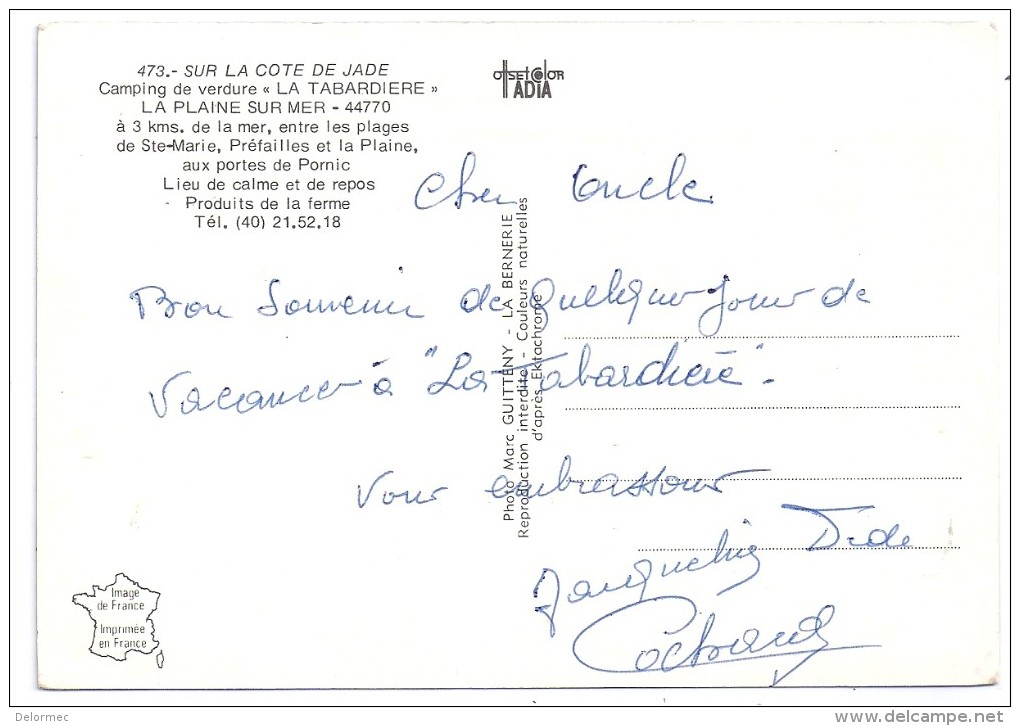 473.- SUR LA COTE DE JADE
Camping de verdure « LA TABARDIERE »
LA PLAINE SUR MER - 44770
à 3 kms. de la mer, entre les plages
de Ste-Marie, Préfailles et la Plaine,
aux portes de Pornic
Lieu de calme et de repos
- Produits de la ferme
Tél. (40) 21.52.18
OffSET COLOR
ADIA
Cher oncle
Bon Souvenir de quelques jours de
Vacances à "La Tabardière".
Vous embrassons
Jacqueline Dide
Photo Marc GUITTENY - LA BERNERIE
Reproduction interdite - Couleurs naturelles
d'après Ektachrome
Image
de France
Imprimée
en France
Delormec
www.delcampe.net